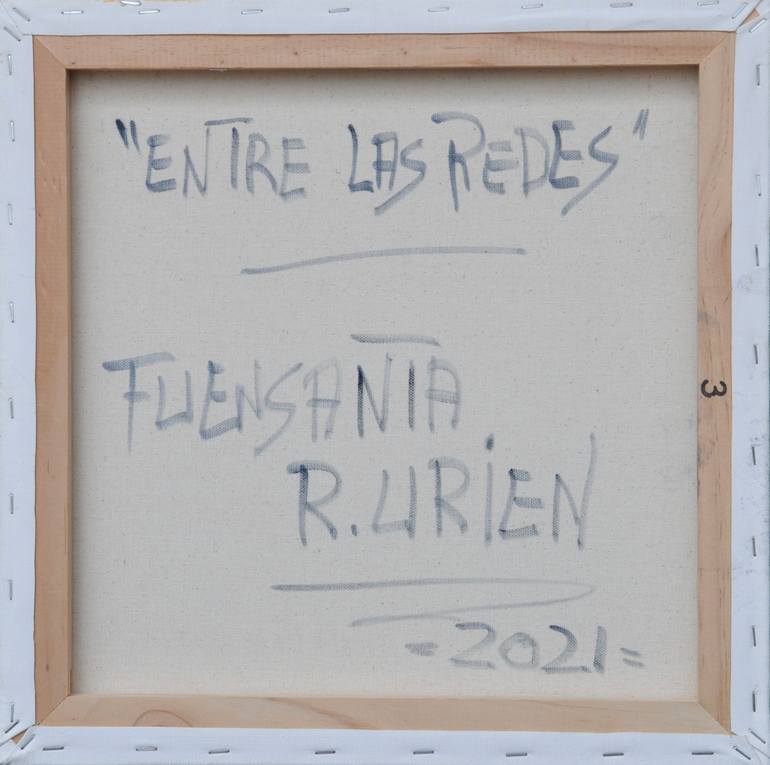 "ENTRE LAS REDES"
FUENSANTA
R.URIEN
-2021=
3